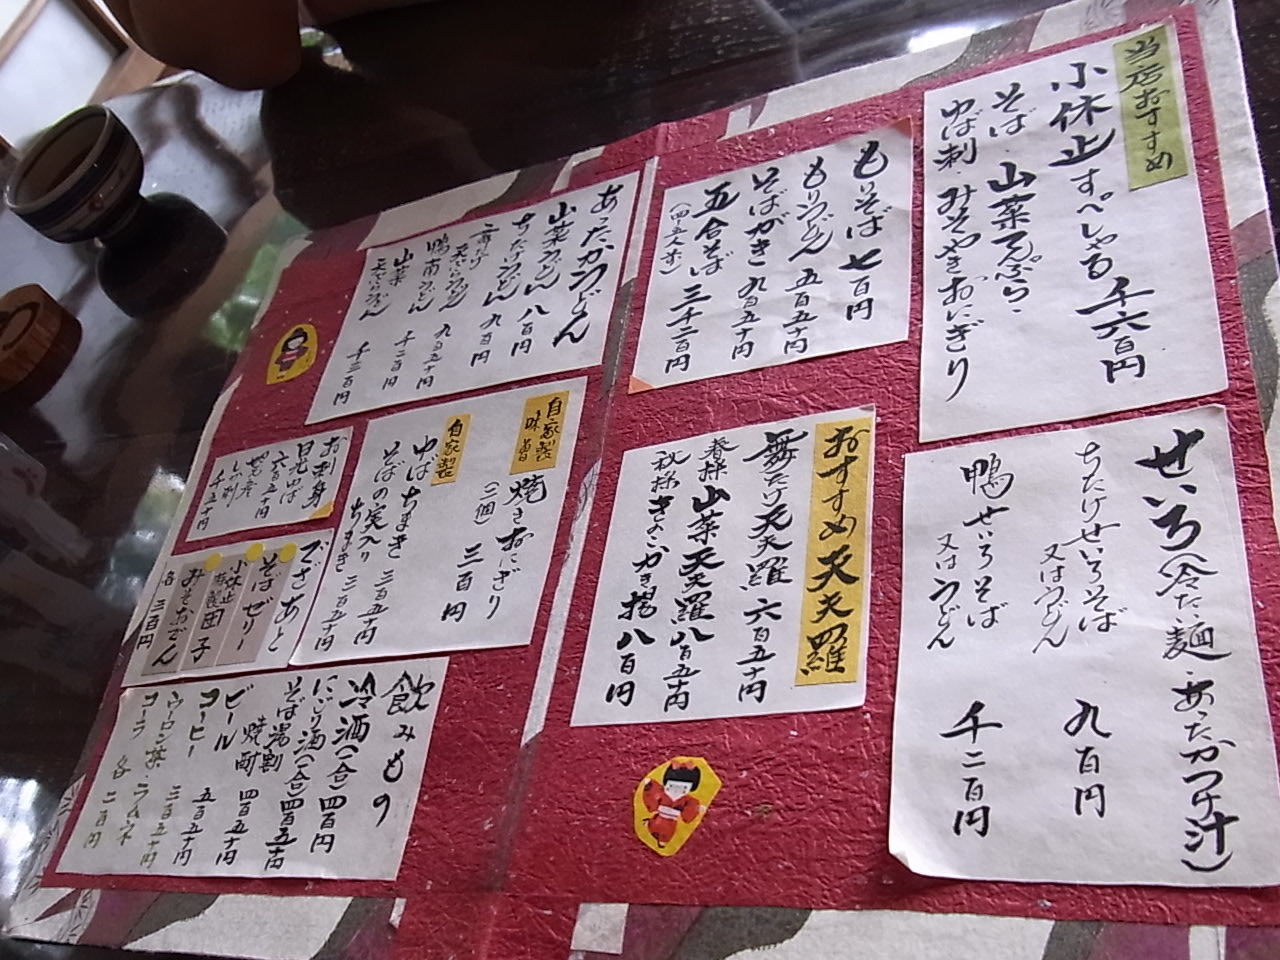 当店おすすめ
小休止すぺしゃる 千六百円
そば・山菜天ぷら・
ゆば刺・みそやきおにぎり
せいろ(冷た麺・あったかつけ汁)
ちたけせいろそば
又はうどん 九百円
鴨せいろそば
又はうどん 千二百円
もりそば 七百円
もりうどん 五百五十円
そばがき 九百五十円
五合そば 三千二百円
(四・五人前)
おすすめ天天羅
舞たけ天天羅 六百五十円
春採 山菜天天羅 八百五十円
秋採 きのこかき揚 八百円
あったかうどん
山菜うどん 八百円
ちたけうどん 九百円
天ぷらうどん 九百五十円
鴨南うどん 千二百円
山菜
天ぷらうどん 千三百円
自家製
味噌
焼きおにぎり
(二個) 三百円
自家製
ゆばちまき 三百五十円
そばの実入り
ちまき 三百五十円
お刺身
日光ゆば
六百五十円
でざあと
そばゼリー
小休止
特製団子
みそおでん
各 三百円
飲みもの
冷酒(一合) 四百円
にごり酒(一合) 四百五十円
そば湯割
焼酎 四百五十円
ビール 五百五十円
コーヒー 三百五十円
ウーロン茶・ラムネ
コーラ 各 二百円